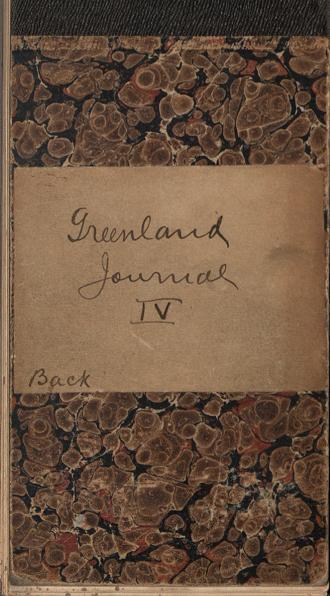 Greenland
Journal
IV
Back